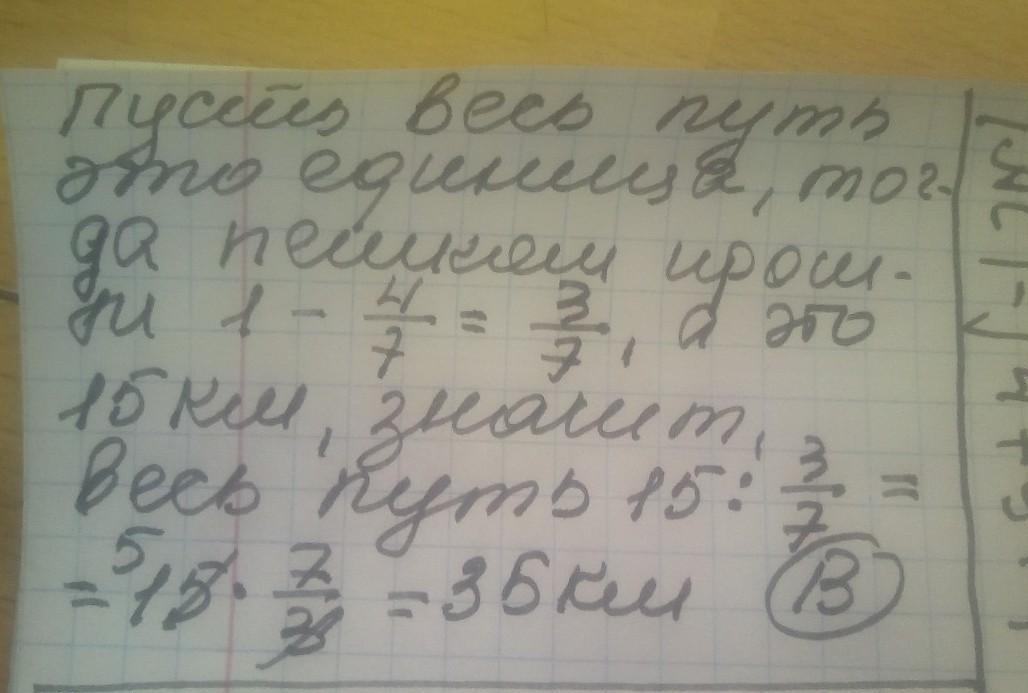 Пусть весь путь
это единица, тог-
да пешком прош-
ли 1 - 4/7 = 3/7, а это
15 км, значит,
весь путь 15 : 3/7 =
= 5 15 · 7/3 = 35 км В